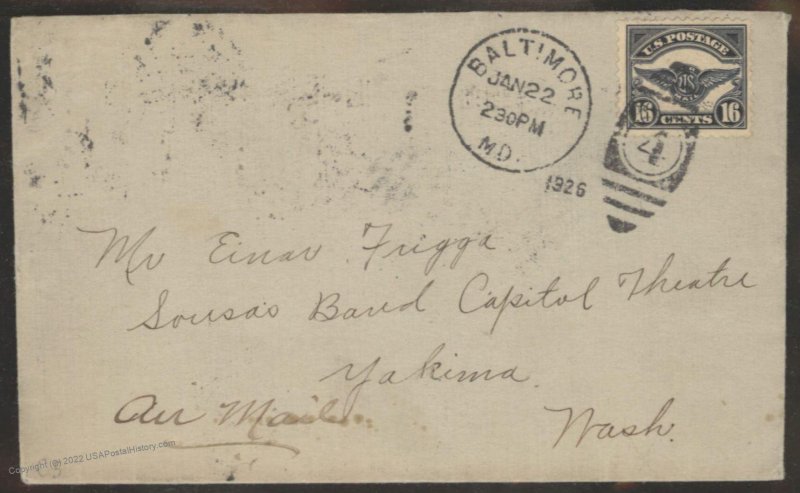 BALTIMORE
JAN 22
230 PM
MD.
1926
U.S. POSTAGE
US
MAIL
16 CENTS 16
4
Mr Einar Frigga
Sousa's Band Capitol Theatre
Yakima
Air Mail
Wash.
Copyright (@) 2022 USAPostalHistory.com